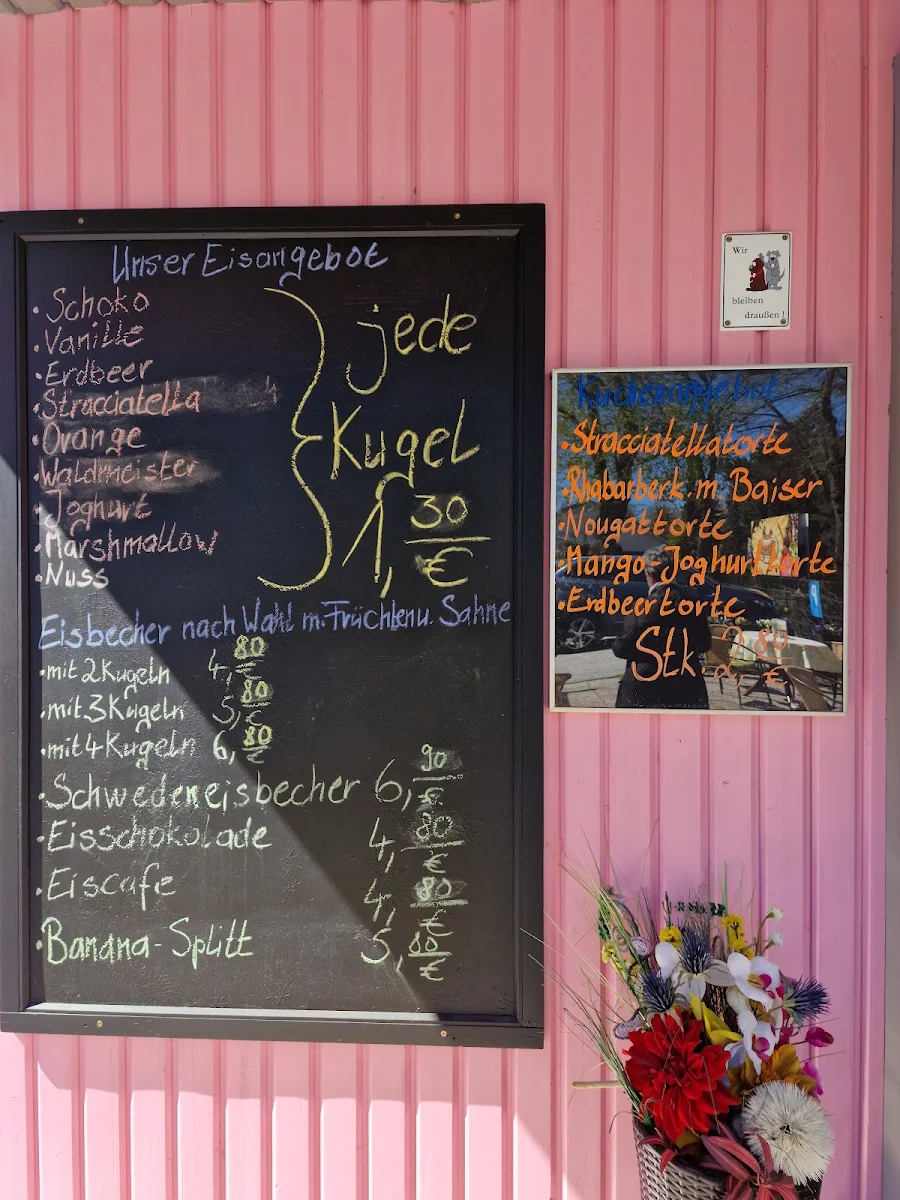 Unser Eisangebot
• Schoko
• Vanille
• Erdbeer
• Stracciatella
• Orange
• Waldmeister
• Joghurt
• Marshmallow
• Nuss
jede
Kugel
1,30 €
Eisbecher nach Wahl m. Früchten u. Sahne
• mit 2 Kugeln 4,80 €
• mit 3 Kugeln 5,80 €
• mit 4 Kugeln 6,80 €
• Schwedeneisbecher 6,90
• Eisschokolade 4,80 €
• Eiscafe 4,80 €
• Banana-Splitt 5,80 €
Wir
bleiben
draußen!
Kuchenangebot
• Stracciatellatorte
• Rhabarberk. m. Baiser
• Nougattorte
• Mango-Joghurttorte
• Erdbeertorte
Stk. 2,80 €